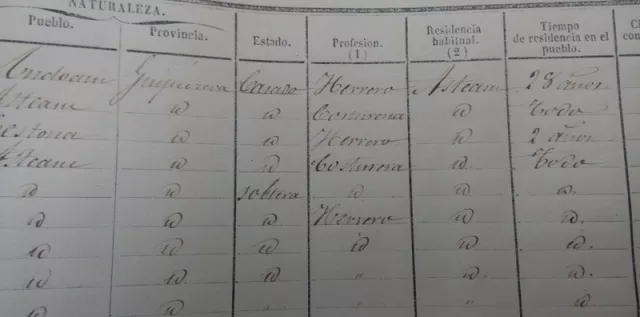 NATURALEZA.
Pueblo. Provincia. Estado. Profesion. (1) Residencia habitual. (2) Tiempo de residencia en el pueblo.
Andoain Guipúzcoa Casado Herrero Asteasu 28 años
Asteasu id id Costurera id Todo
Cestona id id Herrero id 2 años
Asteasu id id Costurera id Todo
id id soltera id id id.
id id id Herrero id id.
id id id id id id.
id id id " id id.
id " " " id